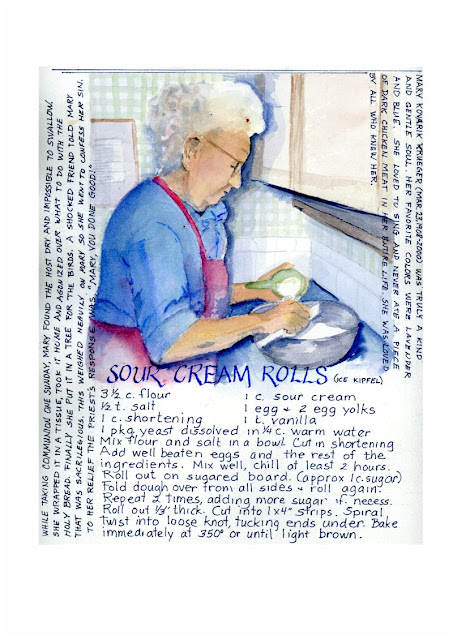 MARY KOVARIK KRUEGER (MAR. 23, 1908-2000) WAS TRULY A KIND
AND GENTLE SOUL. HER FAVORITE COLORS WERE LAVENDER
AND BLUE. SHE LOVED TO SING AND NEVER ATE A PIECE
OF DARK CHICKEN MEAT IN HER ENTIRE LIFE. SHE WAS LOVED
BY ALL WHO KNEW HER.
WHILE TAKING COMMUNION ONE SUNDAY, MARY FOUND THE HOST DRY AND IMPOSSIBLE TO SWALLOW.
SHE WRAPPED IT IN A TISSUE, TOOK IT HOME AND AGONIZED OVER WHAT TO DO WITH THE
HOLY BREAD. FINALLY SHE PUT IT IN A TREE FOR THE BIRDS. A SHOCKED FRIEND TOLD MARY
THAT WAS SACRILEGIOUS. THIS WEIGHED HEAVILY ON MARY SO SHE WENT TO CONFESS HER SIN.
TO HER RELIEF THE PRIEST'S RESPONSE WAS, "MARY, YOU DONE GOOD!"
SOUR CREAM ROLLS (ICE KIPFEL)
3½ c. flour 1 c. sour cream
½ t. salt 1 egg + 2 egg yolks
1 c. shortening 1 t. vanilla
1 pkg yeast dissolved in ¼ c. warm water
Mix flour and salt in a bowl. Cut in shortening
Add well beaten eggs and the rest of the
ingredients. Mix well, chill at least 2 hours.
Roll out on sugared board. (approx 1 c. sugar)
Fold dough over from all sides + roll again.
Repeat 2 times, adding more sugar if necess.
Roll out ⅓" thick. Cut into 1x4" strips. Spiral,
twist into loose knot, tucking ends under. Bake
immediately at 350° or until light brown.